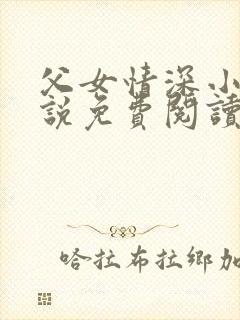 父女情深小
說免費閱讀
哈拉布拉鄉加